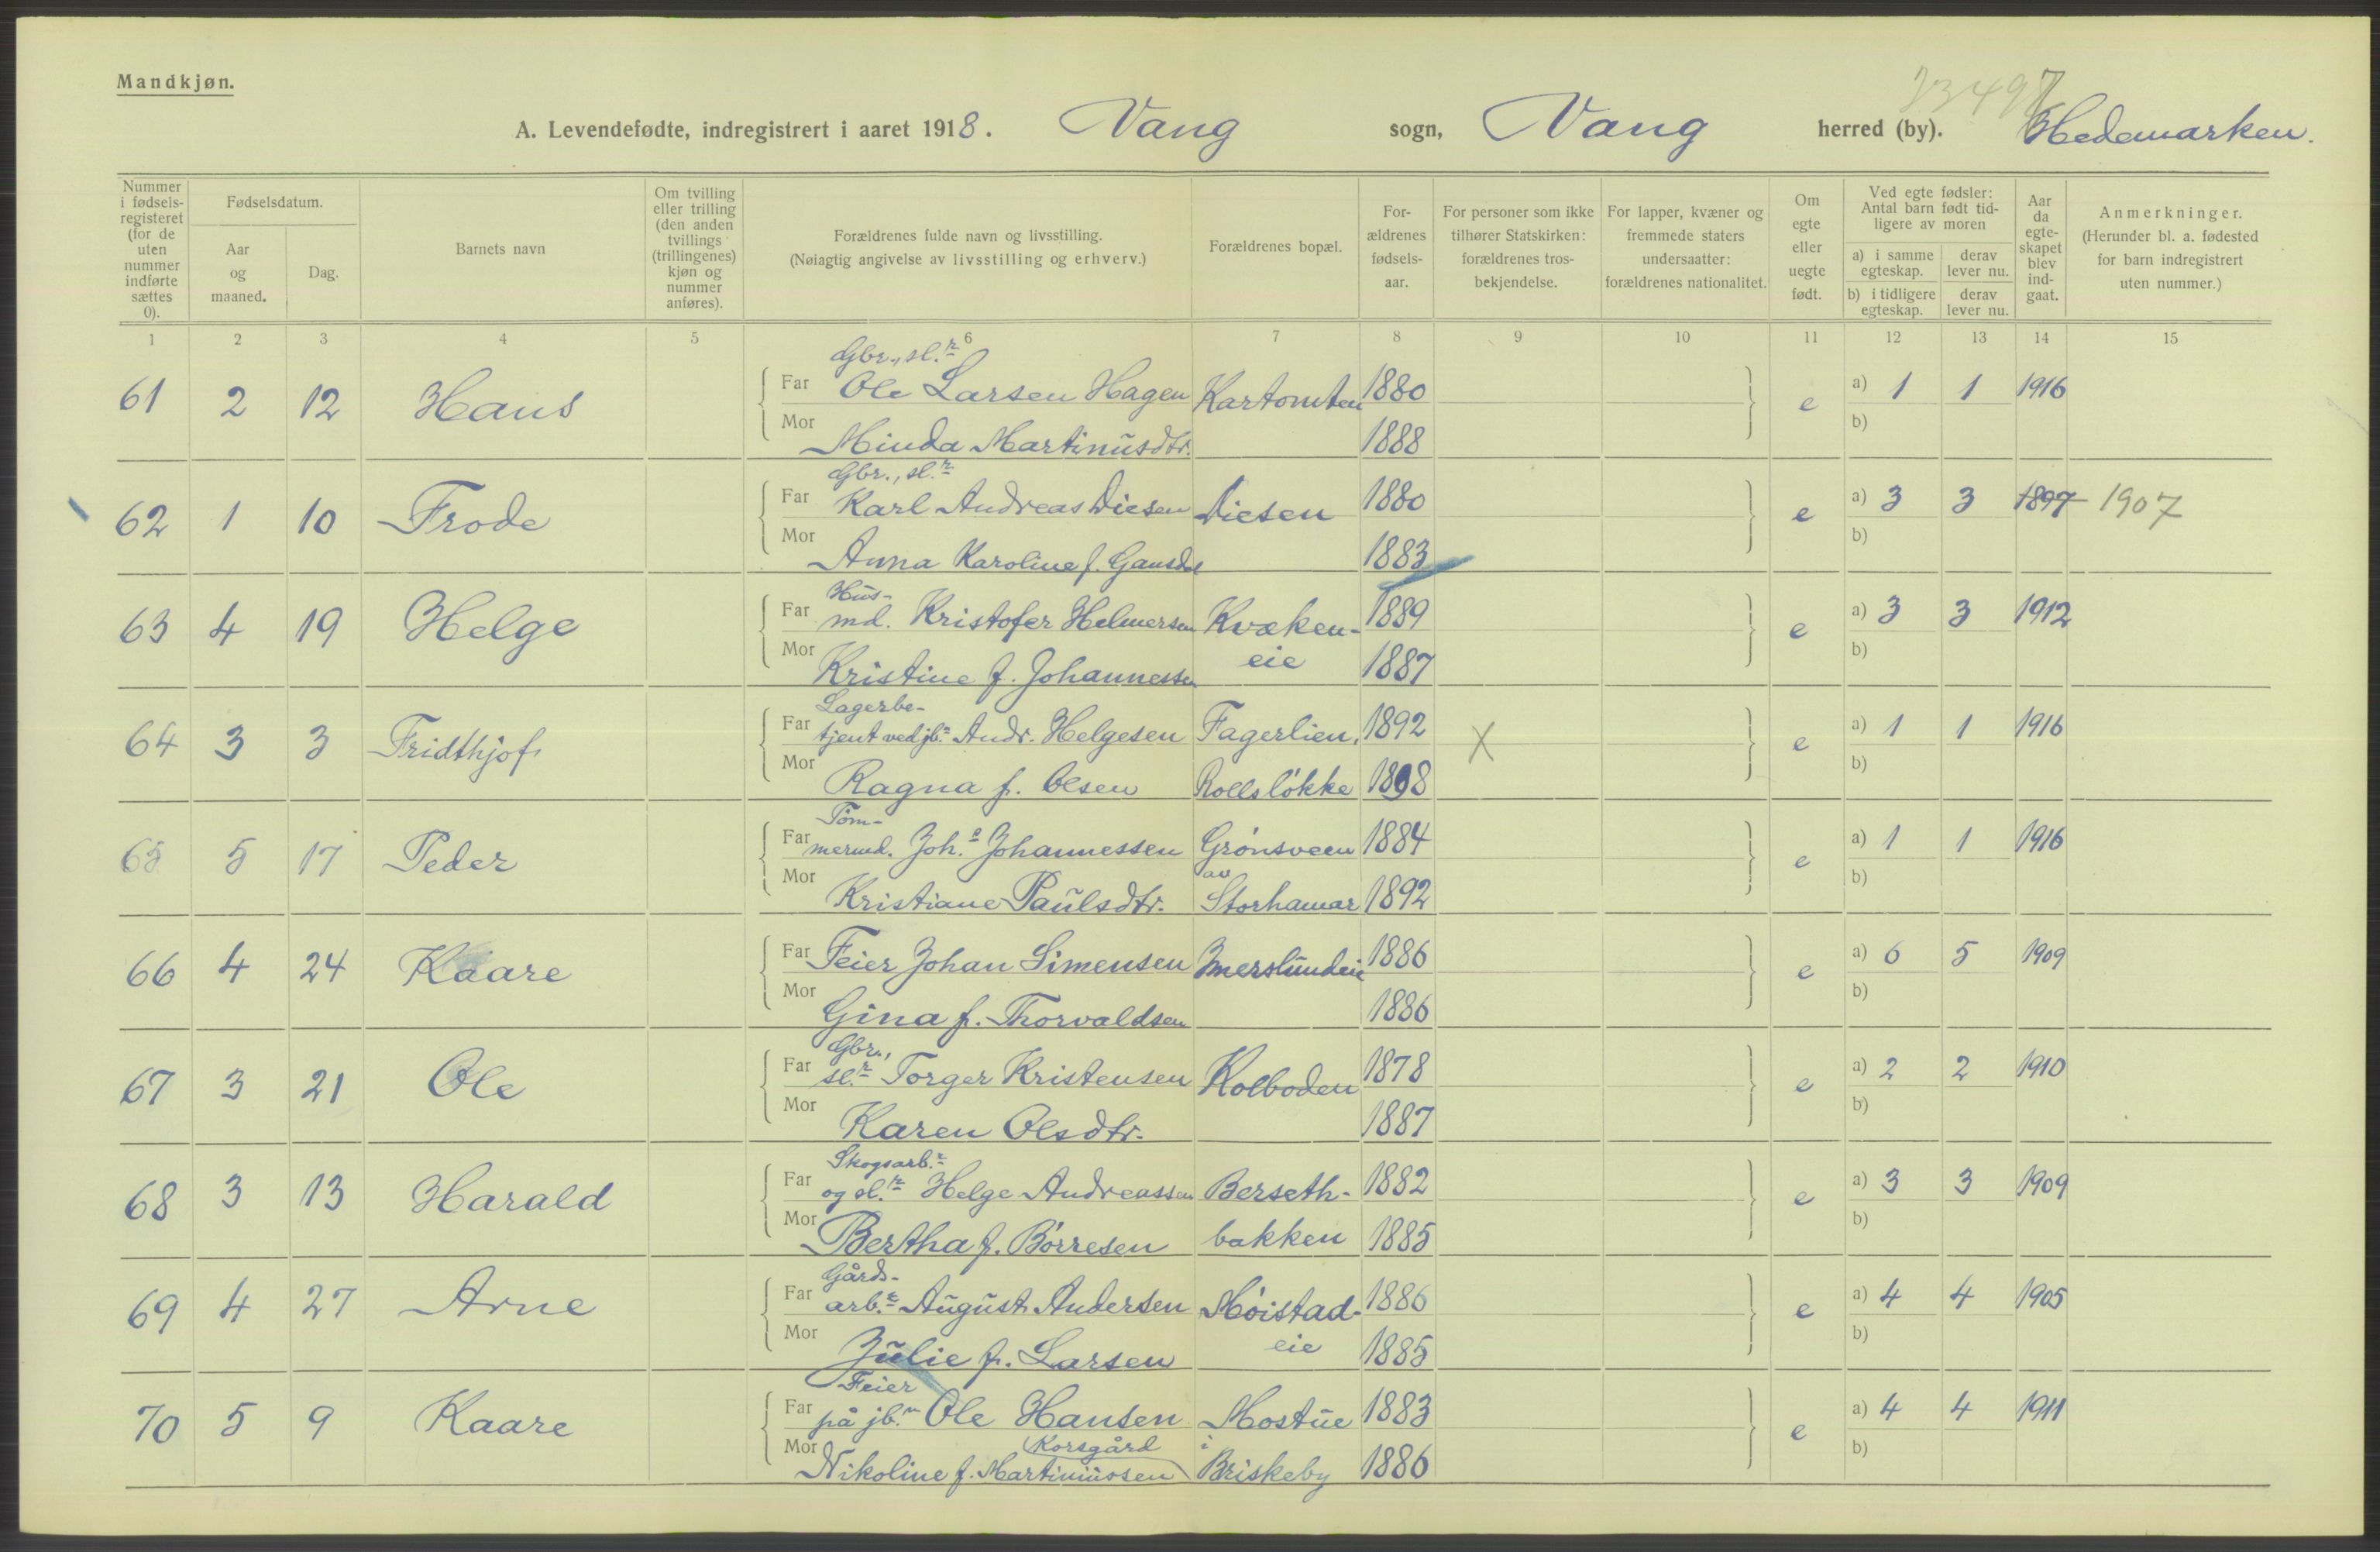 Mandkjøn.
A. Levendefødte, indregistrert i aaret 1918. Vang sogn, Vang herred (by). Hedemarken.
Nummer i fødsels-registeret (for de uten nummer indførte sættes 0).
Fødselsdatum.
Aar og maaned.
Dag.
Barnets navn
Om tvilling eller trilling (den anden tvillings (trillingenes) kjøn og nummer anføres).
Forældrenes fulde navn og livsstilling.
(Nøiagtig angivelse av livsstilling og erhverv.)
Forældrenes bopæl.
For-ældrenes fødsels-aar.
For personer som ikke tilhører Statskirken: forældrenes tros-bekjendelse.
For lapper, kvæner og fremmede staters undersaatter: forældrenes nationalitet.
Om egte eller uegte født.
Ved egte fødsler: Antal barn født tid-ligere av moren
a) i samme egteskap.
derav lever nu.
b) i tidligere egteskap.
derav lever nu.
Aar da egte-skapet blev ind-gaat.
Anmerkninger.
(Herunder bl. a. fødested for barn indregistrert uten nummer.)
1 2 3 4 5 6 7 8 9 10 11 12 13 14 15
Gbr., sl.r
61 2 12 Hans Far Ole Larsen Hagen Kartomten 1880 e a) 1 1 1916
Mor Minda Martinusdtr. 1888 b)
Gbr., sl.r
62 1 10 Frode Far Karl Andreas Diesen Diesen 1880 e a) 3 3 1897 1907
Mor Anna Karoline f. 1883 b)
Hus-
63 4 19 Helge Far md. Kristofer Helmersen Kvæken- 1889 e a) 3 3 1912
Mor Kristine f. Johannessen eie 1887 b)
Lagerbe-
64 3 3 Fridthjof Far tjent ved jb.n Andr. Helgesen Fagerlien, 1892 X e a) 1 1 1916
Mor Ragna f. Olsen Rollsløkke 1898 b)
Tøm-
65 5 17 Peder Far mermd. Joh.s Johannessen Grønsveen 1884 e a) 1 1 1916
Mor Kristiane Paulsdtr. av Storhamar 1892 b)
66 4 24 Kaare Far Feier Johan Simensen Imerslundeie 1886 e a) 6 5 1909
Mor Gina f. Thorvaldsen 1886 b)
Gbr.,
67 3 21 Ole Far sl.r Torger Kristensen Kolboden 1878 e a) 2 2 1910
Mor Karen Olsdtr. 1887 b)
Skogsarb.r
68 3 13 Harald Far og sl.r Helge Andreassen Berseth- 1882 e a) 3 3 1909
Mor Bertha f. Børresen bakken 1885 b)
Gårds-
69 4 27 Arne Far arb.r August Andersen Møistad- 1886 e a) 4 4 1905
Mor Julie f. Larsen eie 1885 b)
Feier
70 5 9 Kaare Far på jb.n Ole Hansen Mostue 1883 e a) 4 4 1911
Korsgård i
Mor Nikoline f. Martiniussen Briskeby 1886 b)